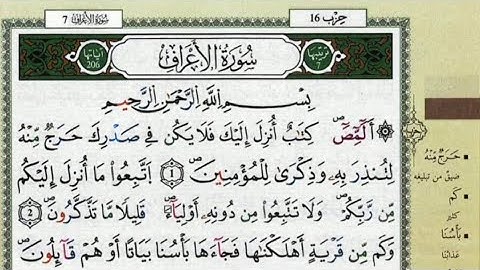 حزب 16
سُورَةُ الأَعْرَاف 7
ترتيبها 7
سُورَةُ الأَعْرَافِ
آياتها 206
بِسْمِ اللَّهِ الرَّحْمَٰنِ الرَّحِيمِ
أَلَٓمِّٓصَٓ كِتَٰبٌ أُنزِلَ إِلَيْكَ فَلَا يَكُن فِى صَدْرِكَ حَرَجٌ مِّنْهُ
لِتُنذِرَ بِهِۦ وَذِكْرَىٰ لِلْمُؤْمِنِينَ 1 اَتَّبِعُوا مَا أُنزِلَ إِلَيْكُم
مِّن رَّبِّكُمْ وَلَا تَتَّبِعُوا مِن دُونِهِۦ أَوْلِيَآءَ قَلِيلًا مَّا تَذَّكَّرُونَ 2
وَكَم مِّن قَرْيَةٍ أَهْلَكْنَٰهَا فَجَآءَهَا بَأْسُنَا بَيَٰتًا أَوْ هُمْ قَآئِلُونَ
حَرَجٌ مِّنْهُ
ضيق من تبليغه
كَم
كثير
بَأْسُنَا
عذابنا